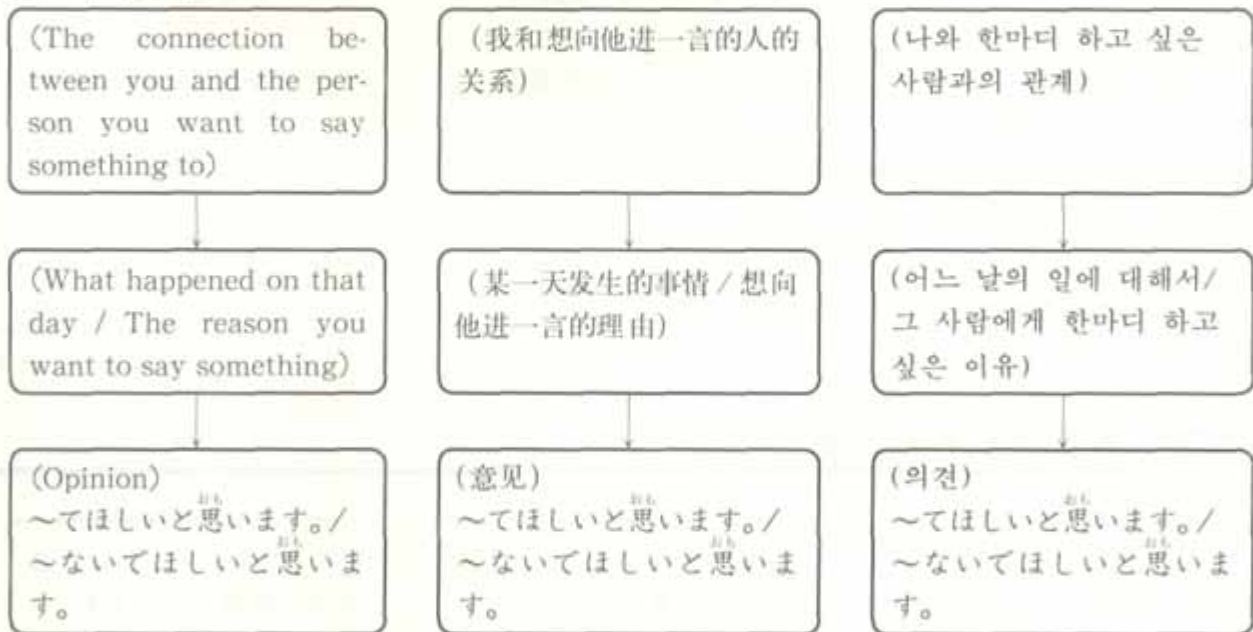 (The connection be-
tween you and the per-
son you want to say
something to)
(What happened on that
day / The reason you
want to say something)
(Opinion)
～てほしいと思います。/
～ないでほしいと思いま
す。
(我和想向他进一言的人的
关系)
(某一天发生的事情 / 想向
他进一言的理由)
(意见)
～てほしいと思います。/
～ないでほしいと思いま
す。
(나와 한마디 하고 싶은
사람과의 관계)
(어느 날의 일에 대해서/
그 사람에게 한마디 하고
싶은 이유)
(의견)
～てほしいと思います。/
～ないでほしいと思いま
す。